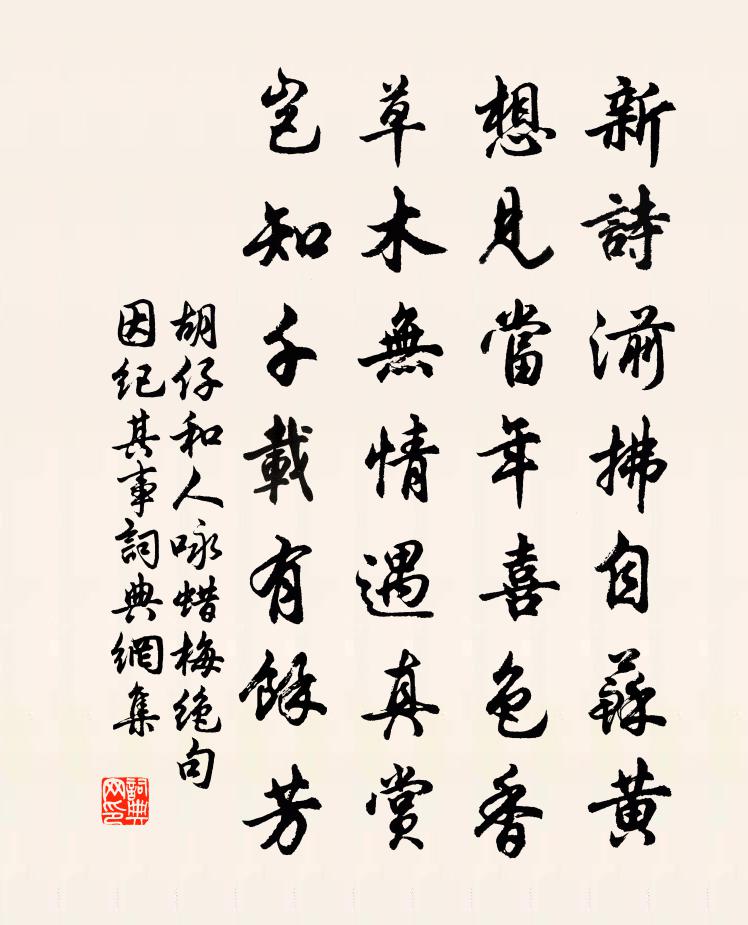 新詩湔拂自蘇黃
想見當年喜色香
草木無情遇真賞
豈知千載有餘芳
胡仔和人咏蜡梅絶句
因紀其事詞典網集
詞典网印